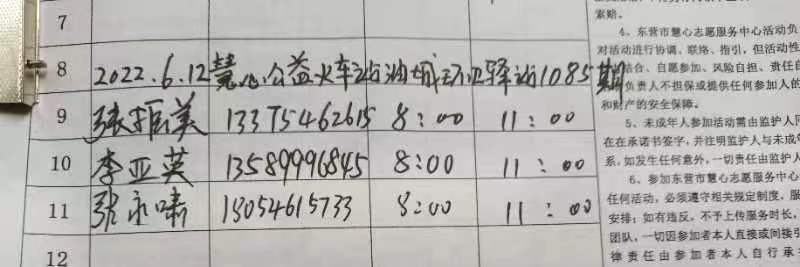 7
8 2022.6.12慧心公益火车站油城环卫驿站1085期
9 张振美 13375462615 8:00 11:00
10 李亚英 13589996845 8:00 11:00
11 张永啸 18054615733 8:00 11:00
12
索赔。
4、东营市慧心志愿服务中心活动负
对活动进行协调、联络、指引,但活动性
结合、自愿参加、风险自担、责任自
负责人不担保或提供任何参加人的
和财产的安全保障。
5、未成年人参加活动需由监护人同
在在承诺书签字,并注明监护人与未成年
系,如发生任何意外,一切责任由监护人
6、参加东营市慧心志愿服务中心
任何活动,必须遵守相关规定制度,服
安排;如有违反,不予上传服务时长,
团队,一切因参加者本人直接或间接引
律责任由参加者本人自行承